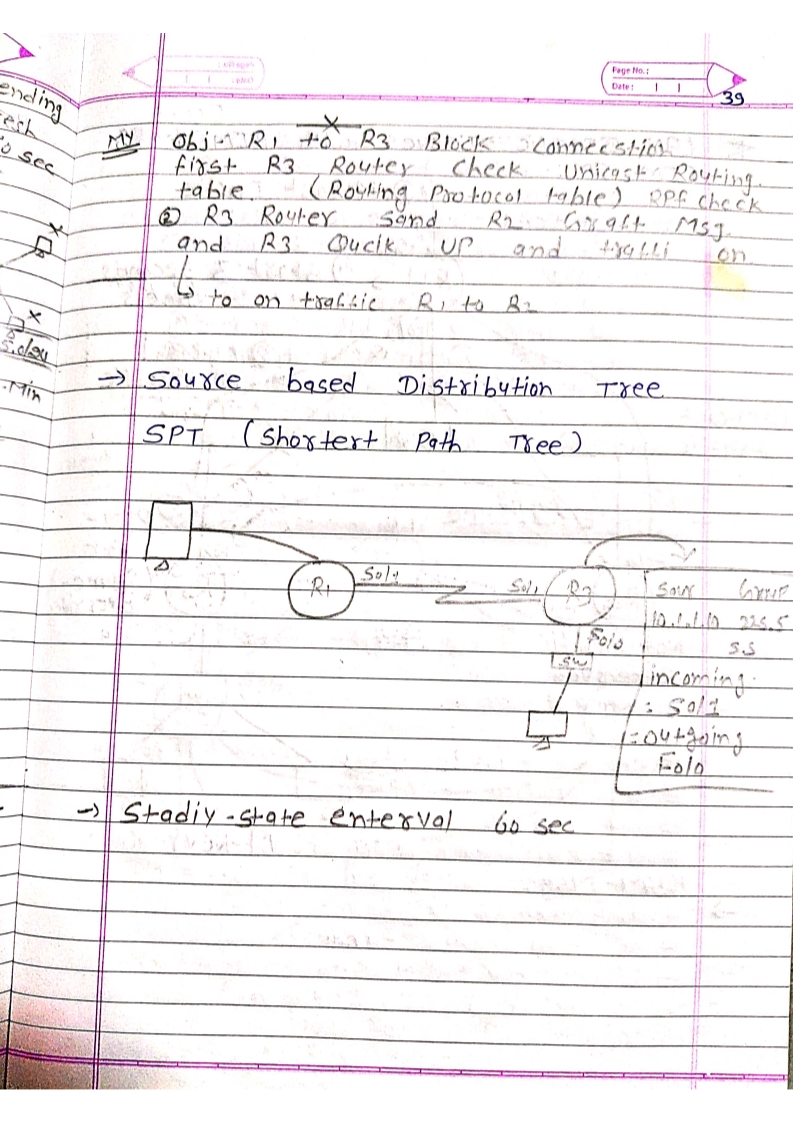 Page No.:
Date:
39
ending
sec
My Obj - R1 to R3 Block Conneestion
first R3 Router Check Unicast Routing.
table. (Routing Protocol table) RPF Check
② R3 Router Sand R2 Graft Msg
and R3 Qucik UP and traffi on
↳ to on traffic R1 to R2
→ Source based Distribution Tree
SPT (Shortert Path Tree)
R1
So/1
R3
Sour Group
10.1.1.10 225.5
5.5
Fo/0
SW
incoming
: So/1
=outgoing
Fo/0
Min
→ Stadiy-state enterval 60 sec